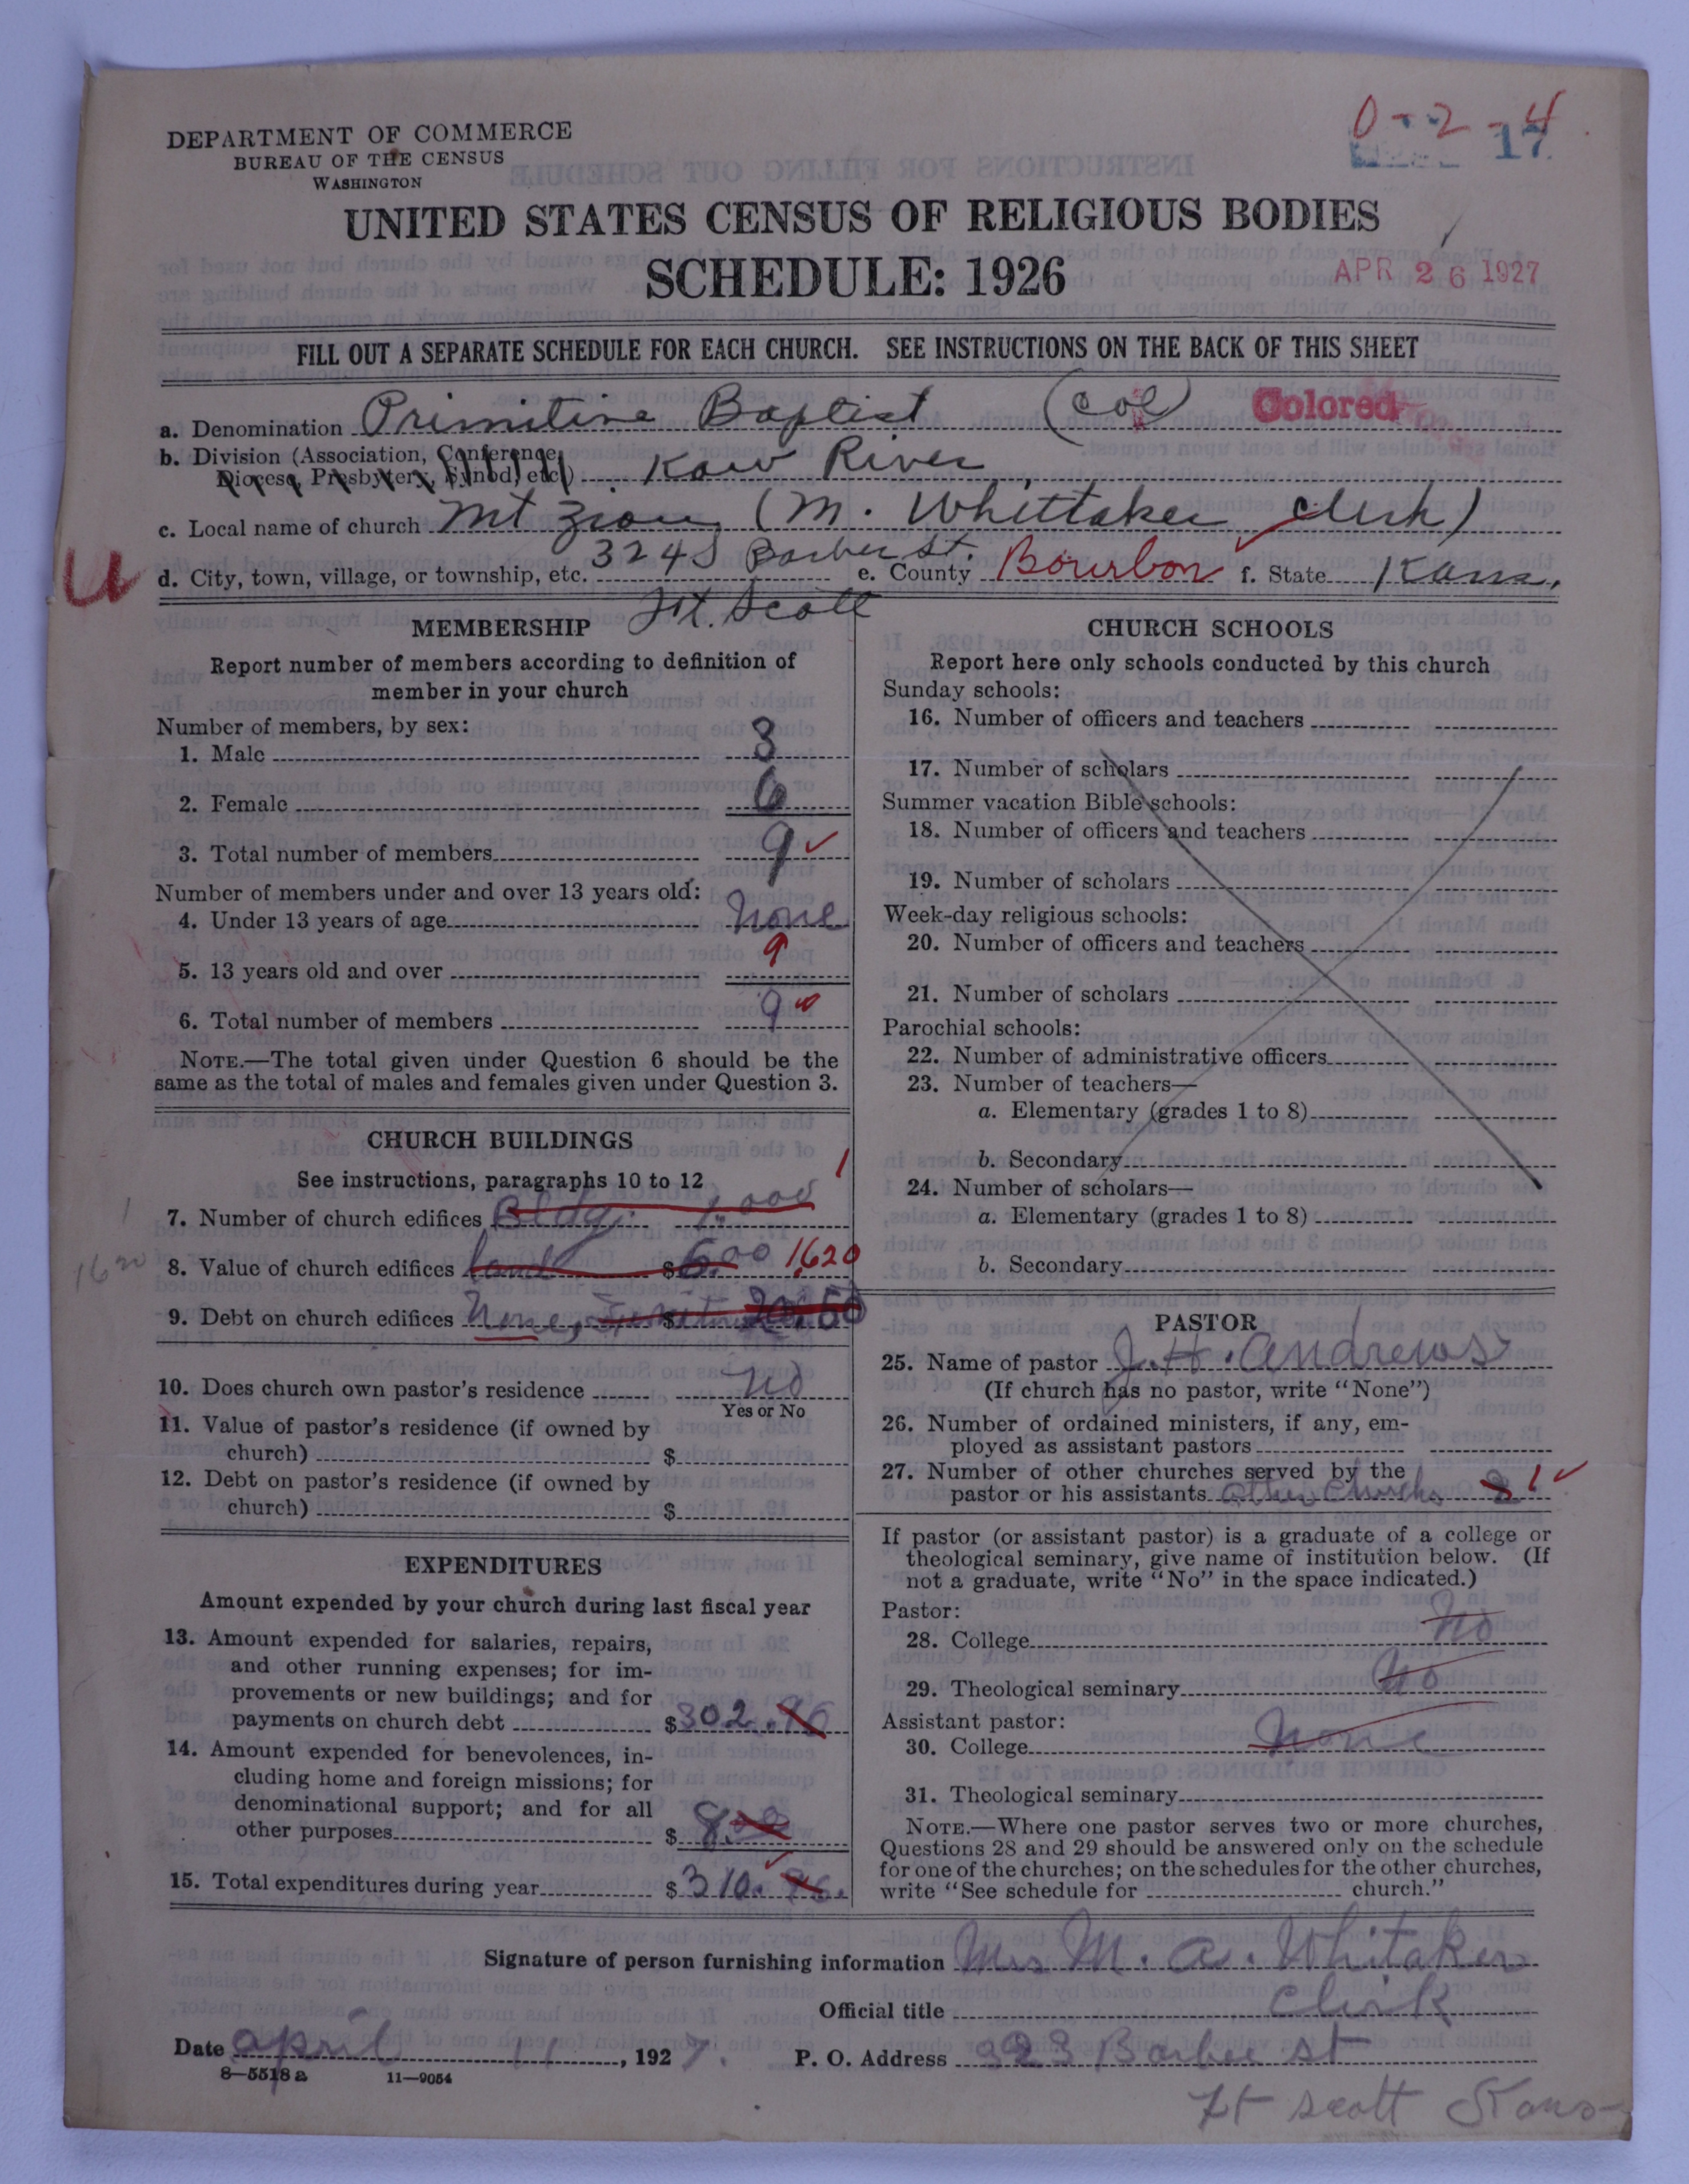 0-2-4
17
DEPARTMENT OF COMMERCE
BUREAU OF THE CENSUS
WASHINGTON
UNITED STATES CENSUS OF RELIGIOUS BODIES
SCHEDULE: 1926
APR 26 1927
FILL OUT A SEPARATE SCHEDULE FOR EACH CHURCH. SEE INSTRUCTIONS ON THE BACK OF THIS SHEET
a. Denomination Primitive Baptist (Col) Colored
b. Division (Association, Conference, Diocese, Presbytery, Synod, etc.) Kaw River
c. Local name of church Mt Zion (M. Whittaker Clerk)
U
d. City, town, village, or township, etc. 324 S Barber St. e. County Bourbon f. State Kans.
Ft. Scott
MEMBERSHIP
Report number of members according to definition of
member in your church
Number of members, by sex:
1. Male 3
2. Female 6
3. Total number of members 9
Number of members under and over 13 years old:
4. Under 13 years of age none
5. 13 years old and over 9
6. Total number of members 9
NOTE.—The total given under Question 6 should be the
same as the total of males and females given under Question 3.
CHURCH BUILDINGS
See instructions, paragraphs 10 to 12
7. Number of church edifices Bldg. 1.000 1
8. Value of church edifices land $ 6.00 1,620
1620
9. Debt on church edifices None, $ 20.50
10. Does church own pastor's residence no
Yes or No
11. Value of pastor's residence (if owned by
church) $
12. Debt on pastor's residence (if owned by
church) $
EXPENDITURES
Amount expended by your church during last fiscal year
13. Amount expended for salaries, repairs,
and other running expenses; for im-
provements or new buildings; and for
payments on church debt $302.96
14. Amount expended for benevolences, in-
cluding home and foreign missions; for
denominational support; and for all
other purposes $ 8.00
15. Total expenditures during year $ 310.96.
CHURCH SCHOOLS
Report here only schools conducted by this church
Sunday schools:
16. Number of officers and teachers
17. Number of scholars
Summer vacation Bible schools:
18. Number of officers and teachers
19. Number of scholars
Week-day religious schools:
20. Number of officers and teachers
21. Number of scholars
Parochial schools:
22. Number of administrative officers
23. Number of teachers—
a. Elementary (grades 1 to 8)
b. Secondary
24. Number of scholars—
a. Elementary (grades 1 to 8)
b. Secondary
PASTOR
25. Name of pastor J. H. Andrews
(If church has no pastor, write "None")
26. Number of ordained ministers, if any, em-
ployed as assistant pastors
27. Number of other churches served by the
pastor or his assistants other Churchs 2 1
If pastor (or assistant pastor) is a graduate of a college or
theological seminary, give name of institution below. (If
not a graduate, write "No" in the space indicated.)
Pastor:
28. College No
29. Theological seminary No
Assistant pastor:
30. College None
31. Theological seminary
NOTE.—Where one pastor serves two or more churches,
Questions 28 and 29 should be answered only on the schedule
for one of the churches; on the schedules for the other churches,
write "See schedule for church."
Signature of person furnishing information Mrs M. A. Whitaker
Official title Clerk
Date April 11, 1927. P. O. Address 323 Barbee st
8—5518a 11—9054
Ft Scott Kans